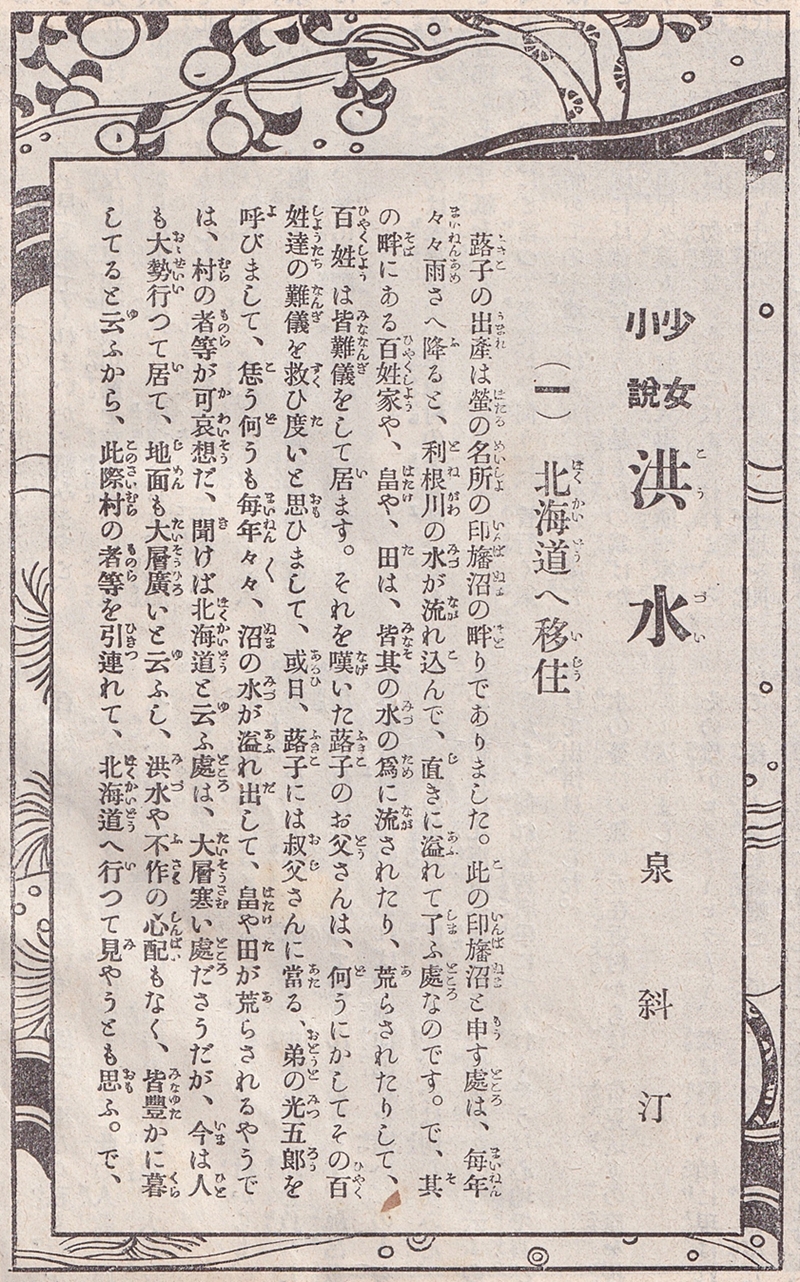 少女小說 洪水 泉斜汀
(一) 北海道へ移住
蕗子の出產は螢の名所の印旛沼の畔りでありました。此の印旛沼と申す處は、每年
々々雨さへ降ると、利根川の水が流れ込んで、直きに溢れて了ふ處なのです。で、其
の畔にある百姓家や、畠や、田は、皆其の水の爲に流されたり、荒らされたりして、
百姓は皆難儀をして居ます。それを嘆いた蕗子のお父さんは、何うにかしてその百
姓達の難儀を救ひ度いと思ひまして、或日、蕗子には叔父さんに當る、弟の光五郎を
呼びまして、恁う何うも每年々々、沼の水が溢れ出して、畠や田が荒らされるやうで
は、村の者等が可哀想だ、聞けば北海道と云ふ處は、大層寒い處ださうだが、今は人
も大勢行つて居て、地面も大層廣いと云ふし、洪水や不作の心配もなく、皆豐かに暮
してると云ふから、此際村の者等を引連れて、北海道へ行つて見やうとも思ふ。で、